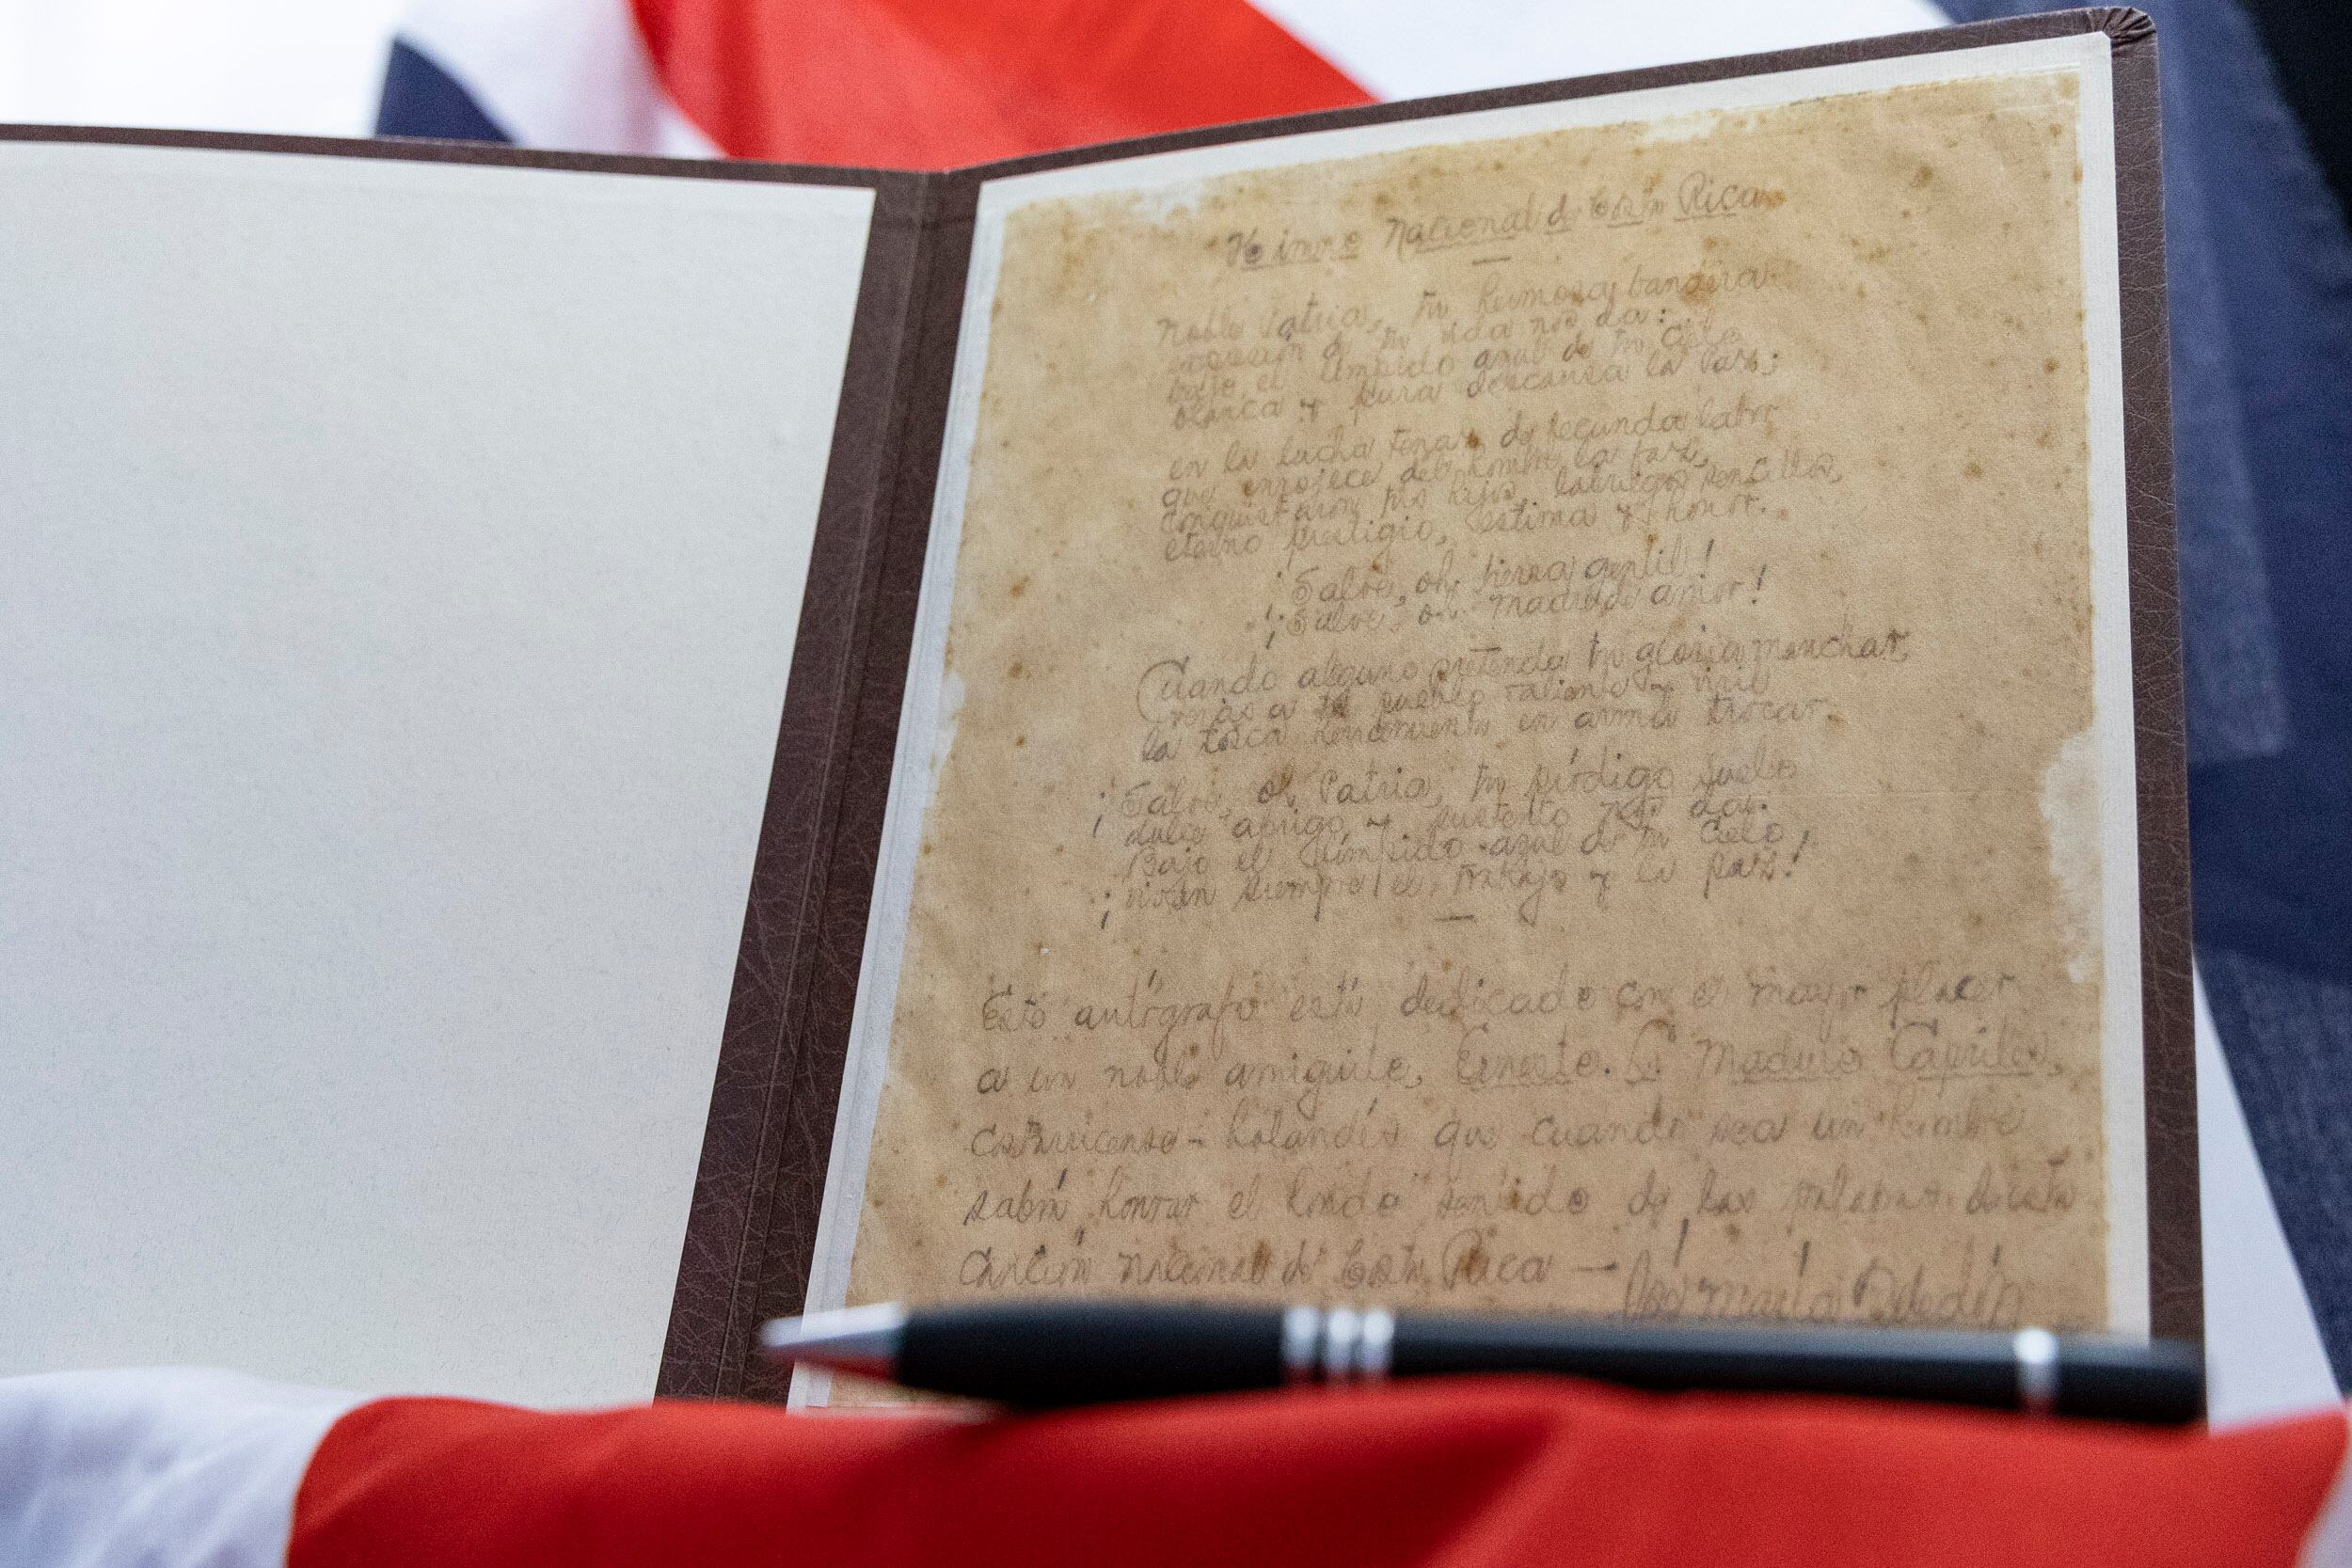 Himno Nacional de Costa Rica
Noble Patria, tu hermosa bandera
expresión de tu vida nos da:
bajo el límpido azul de tu Cielo
blanca y pura descansa la Paz;
en la lucha tenaz de fecunda labor
que enrojece del hombre la faz,
conquistaron tus hijos, labriegos sencillos,
eterno prestigio, estima y honor.
¡Salve, oh tierra gentil!
¡Salve, oh madre de amor!
Cuando alguno pretenda tu gloria manchar,
verás a tu pueblo valiente y viril
la tosca herramienta en arma trocar.
¡Salve, oh Patria, tu pródigo suelo
dulce abrigo y sustento nos da:
Bajo el límpido azul de tu Cielo
¡vivan siempre el trabajo y la paz!
Este autógrafo está dedicado con el mayor placer
a un noble amiguito, Ernesto. C. Maduro Capriles,
costarricense-holandés que cuando sea un hombre
sabrá honrar el hondo sentido de las palabras de esta
Canción nacional de Costa Rica — José María Zeledón